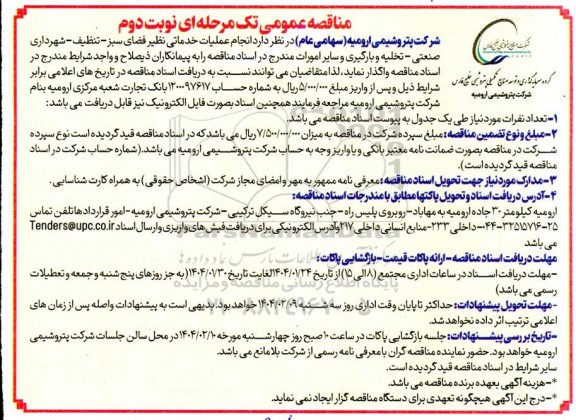 مناقصه عمومی تک مرحله ای نوبت دوم
شرکت پتروشیمی ارومیه (سهامی عام) در نظر دارد انجام عملیات خدماتی نظیر فضای سبز - تنظیف - شهرداری
صنعتی - تخلیه و بارگیری و سایر امورات مندرج در اسناد مناقصه را به پیمانکاران ذیصلاح و واجد شرایط مندرج در
اسناد مناقصه واگذار نماید. لذا متقاضیان می توانند نسبت به دریافت اسناد مناقصه در تاریخ های اعلامی برابر
شرایط ذیل و پس از واریز مبلغ ۵/۰۰۰/۰۰۰ ریال به شماره حساب ۱۳۰۰۰۹۷۶۱۷ بانک تجارت شعبه مرکزی ارومیه بنام
شرکت پتروشیمی ارومیه مراجعه فرمایند همچنین اسناد بصورت فایل الکترونیک نیز قابل دریافت می باشد:
گروه سرمایه گذاری و توسعه صنایع تکمیلی پتروشیمی خلیج فارس
شرکت پتروشیمی ارومیه
۱- تعداد نفرات مورد نیاز طی یک جدول به پیوست اسناد مناقصه می باشد.
۲- مبلغ و نوع تضمین مناقصه: مبلغ سپرده شرکت در مناقصه به میزان ۷/۵۰۰/۰۰۰/۰۰۰ ریال می باشد که در اسناد مناقصه قید گردیده است نوع سپرده
شرکت در مناقصه بصورت ضمانت نامه معتبر بانکی و یا واریز وجه به حساب شرکت پتروشیمی ارومیه می باشد. (شماره حساب شرکت در اسناد
مناقصه قید گردیده است).
۳- مدارک مورد نیاز جهت تحویل اسناد مناقصه: معرفی نامه ممهور به مهر و امضای مجاز شرکت (اشخاص حقوقی) به همراه کارت شناسایی.
۴- آدرس دریافت اسناد و تحویل پاکتها مطابق با مندرجات اسناد مناقصه:
ارومیه کیلومتر ۳۰ جاده ارومیه به مهاباد - روبروی پلیس راه - جنب نیروگاه سیکل ترکیبی - شرکت پتروشیمی ارومیه - امور قراردادها تلفن تماس
۲۵-۳۲۵۱۵۷۱۶-۰۴۴ داخلی ۲۳۳ - منابع انسانی داخلی ۲۱۷ و آدرس الکترونیکی برای دریافت فیش های واریزی و ارسال اسناد Tenders@upc.co.ir
می باشد
مهلت دریافت اسناد مناقصه - ارائه پاکات قیمت - بازگشایی پاکات:
- مهلت دریافت اسناد در ساعات اداری مجتمع (۸ الی ۱۵) از تاریخ ۱۴۰۴/۰۱/۲۴ لغایت تاریخ ۱۴۰۴/۰۱/۳۰ (به جز روزهای پنج شنبه و جمعه و تعطیلات
رسمی می باشد)
- مهلت تحویل پیشنهادات: حداکثر تا پایان وقت اداری روز سه شنبه ۱۴۰۴/۰۲/۰۹ خواهد بود. بدیهی است به پیشنهادات واصله پس از زمان های
اعلامی ترتیب اثر داده نخواهد شد.
- تاریخ بررسی پیشنهادات: جلسه بازگشایی پاکات در ساعت ۱۰ صبح روز چهارشنبه مورخه ۱۴۰۴/۰۲/۱۰ در محل سالن جلسات شرکت پتروشیمی
ارومیه خواهد بود. حضور نماینده مناقصه گران با معرفی نامه رسمی از شرکت بلامانع می باشد.
سایر شرایط در اسناد مناقصه قید گردیده است.
*- هزینه آگهی بعهده برنده مناقصه می باشد.
*- درج این آگهی هیچگونه تعهدی برای دستگاه مناقصه گزار ایجاد نمی نماید.